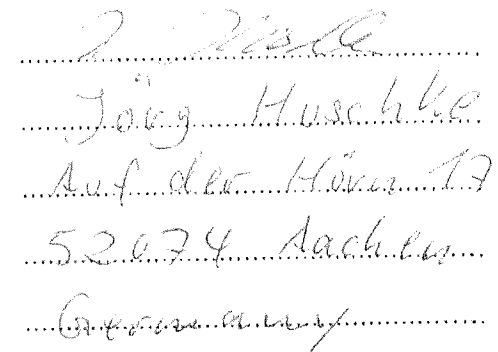 Jörg Huschke
Auf der Hörn 17
52074 Aachen
Germany